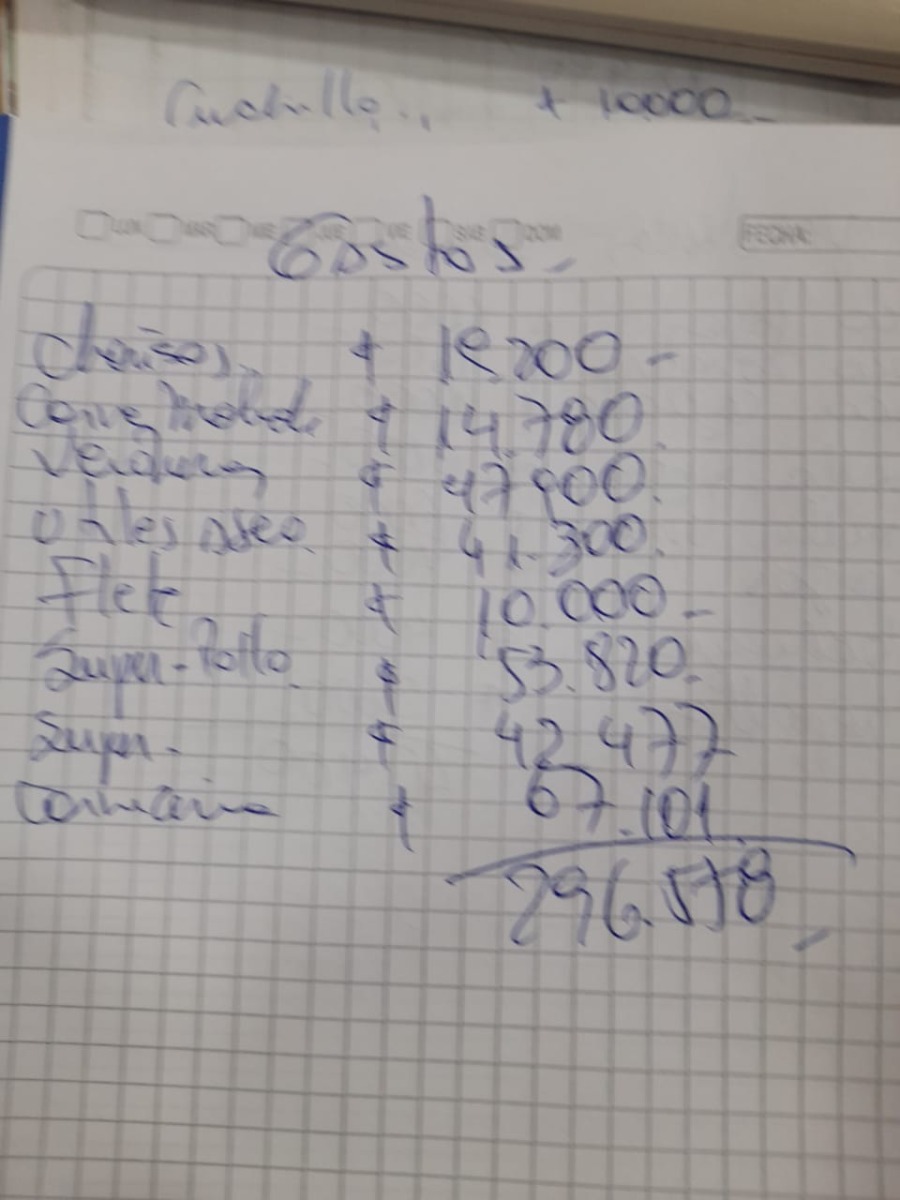 Cuchillo.. $ 10.000_
LUN MAR MIE JUE VIE SAB DOM FECHA:
Gastos_
$ 19.200_
Carne Molida $ 14.780.
Verduras $ 47.900.
Utiles aseo. $ 41.300.
Flete $ 10.000_
Super-Pollo. $ 53.820.
Super. $ 42.477
$ 67.101
296.578_